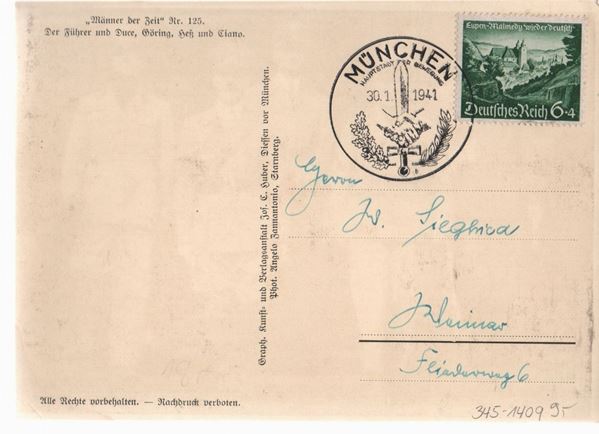 „Männer der Zeit" Nr. 125.
Der Führer und Duce, Göring, Heß und Ciano.
Eupen-Malmedy wieder deutsch
Deutsches Reich 6+4
MÜNCHEN
HAUPTSTADT DER BEWEGUNG
30.1. 1941
Graph. Kunst- und Verlagsanstalt Jos. C. Huber, Diessen vor München.
Phot. Angelo Zannantonio, Starnberg.
Herrn
Siegfried
Weimar
Fliederweg 6
Alle Rechte vorbehalten. — Nachdruck verboten.
345-1409